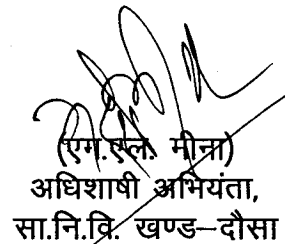 (एम.एल. मीना)
अधिशाषी अभियंता,
सा.नि.वि. खण्ड–दौसा